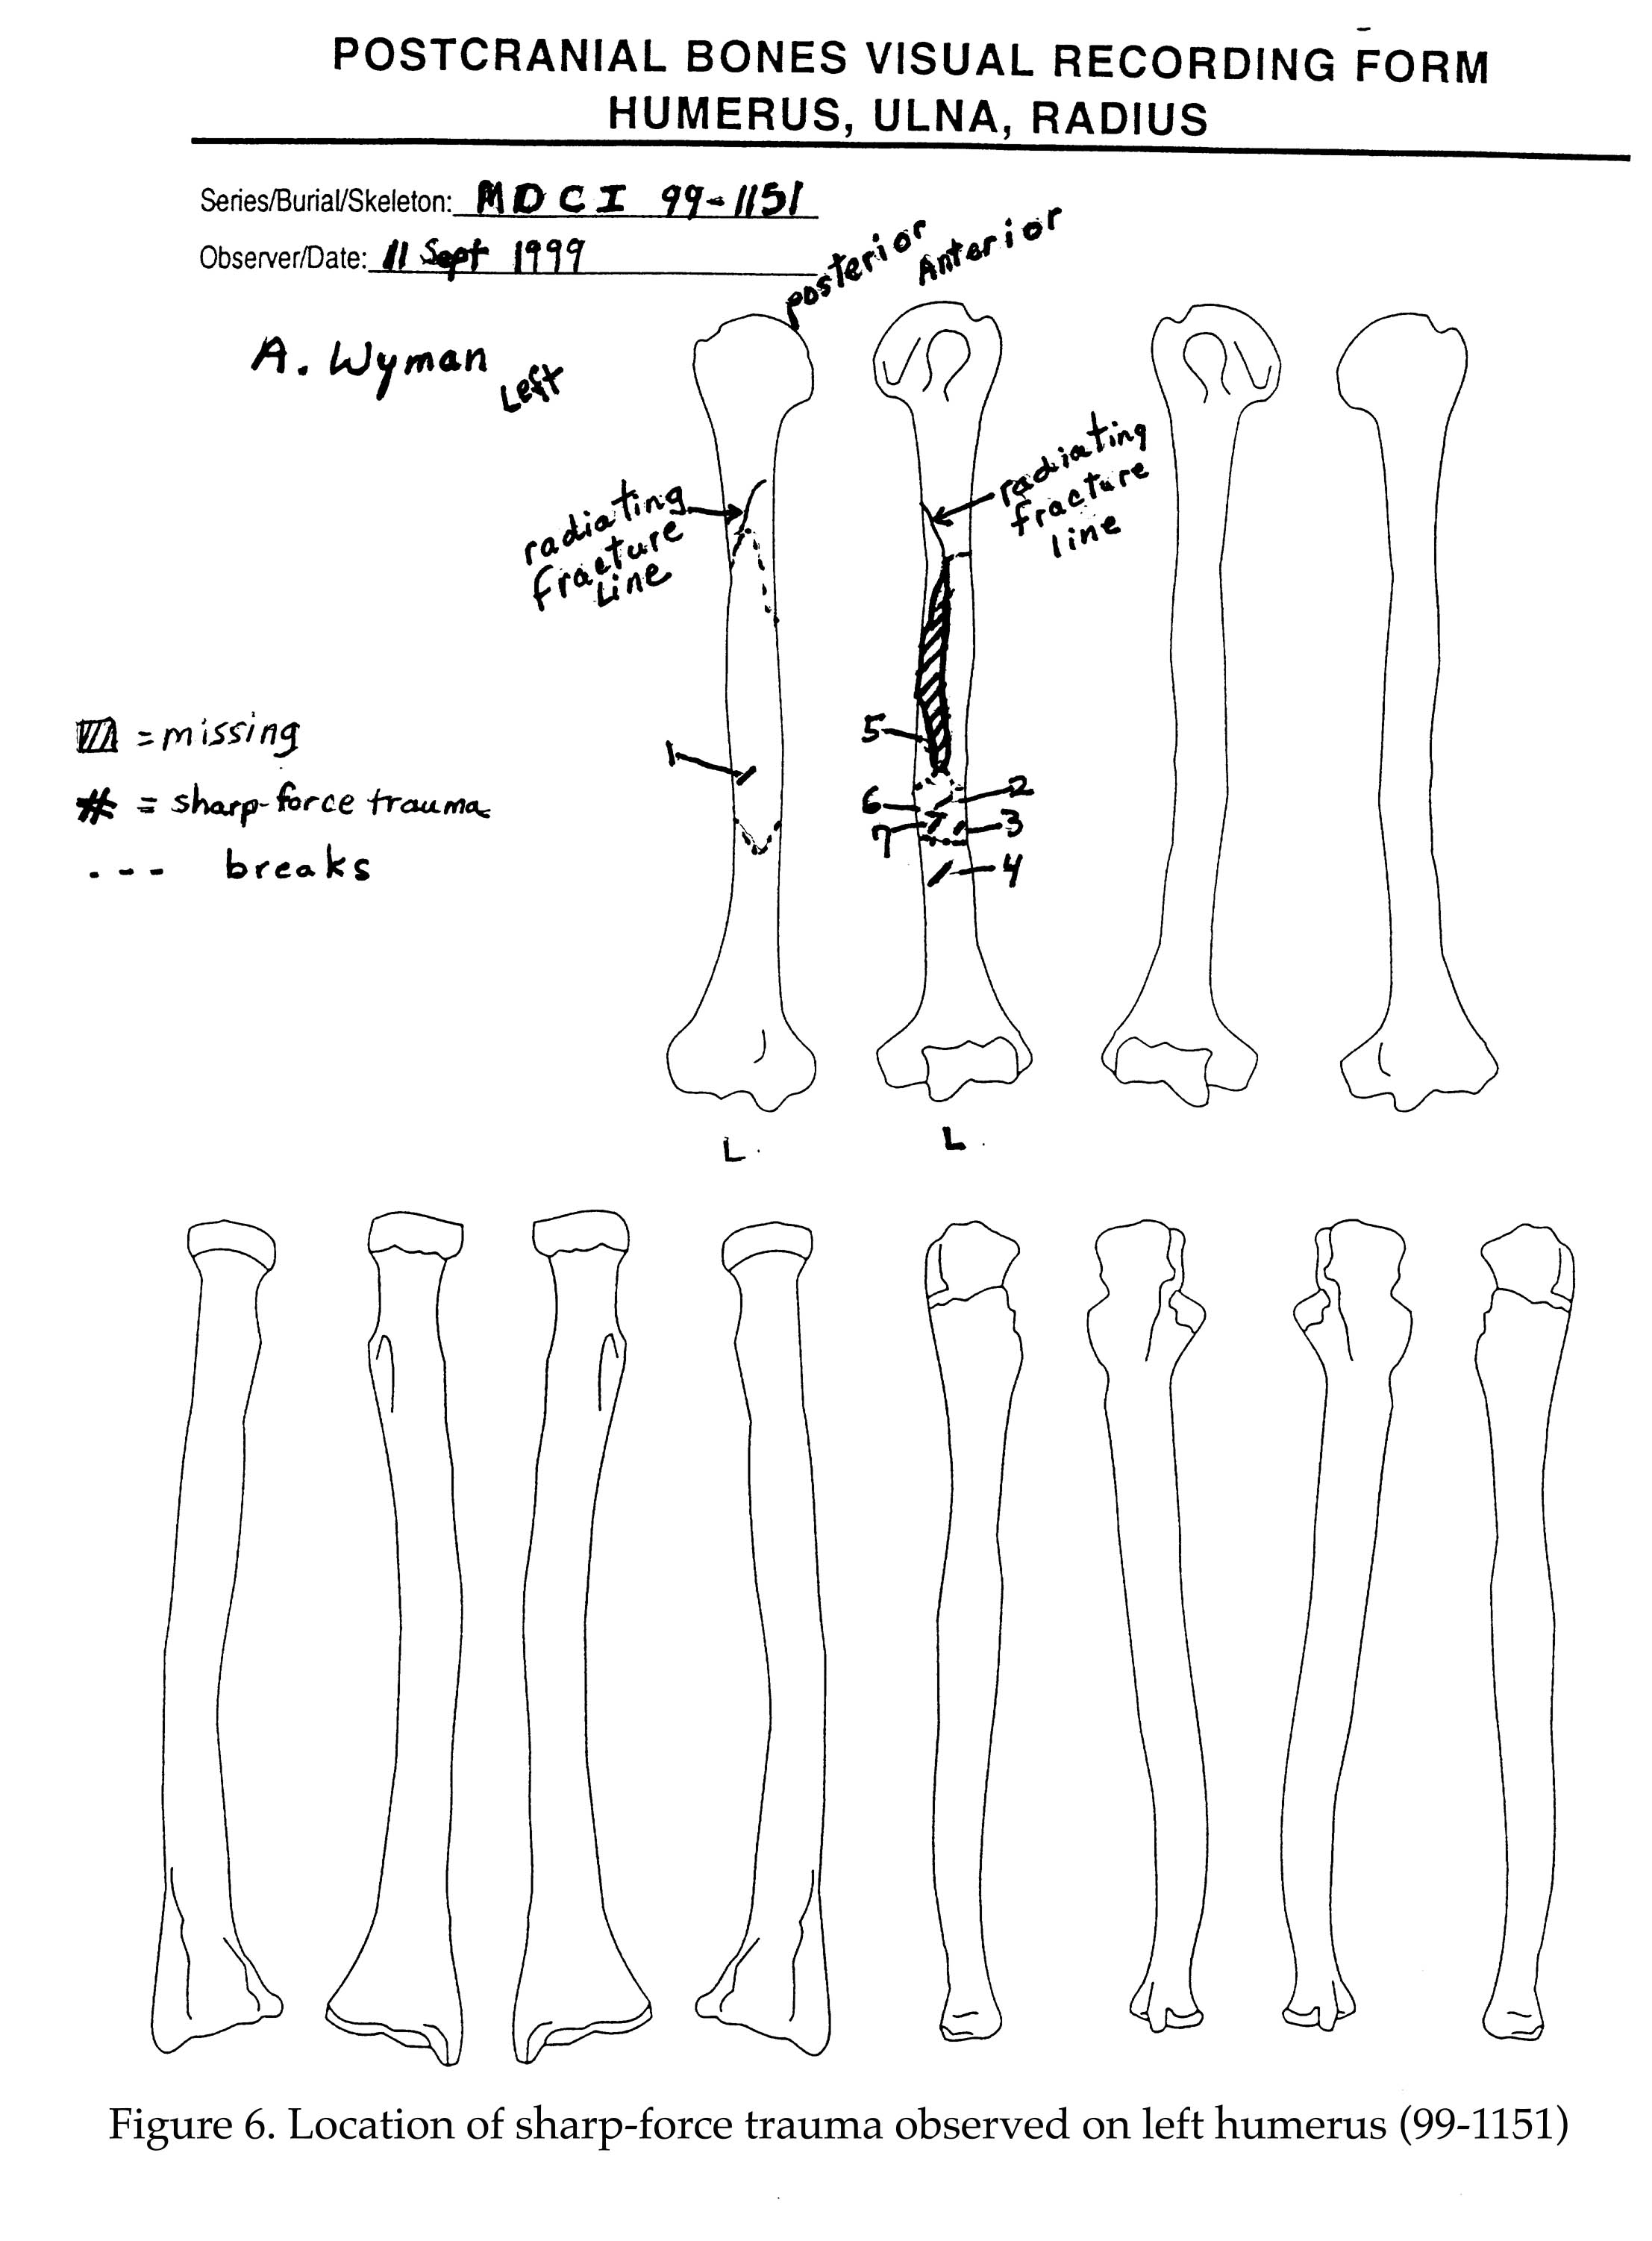 POSTCRANIAL BONES VISUAL RECORDING FORM
HUMERUS, ULNA, RADIUS
Series/Burial/Skeleton: MDCI 99-1151
Observer/Date: 11 Sept 1999
A. Wyman
Left
posterior
Anterior
radiating
fracture
line
radiating
fracture
line
= missing
# = sharp-force trauma
--- breaks
1
5
6
7
2
3
4
L.
L.
Figure 6. Location of sharp-force trauma observed on left humerus (99-1151)